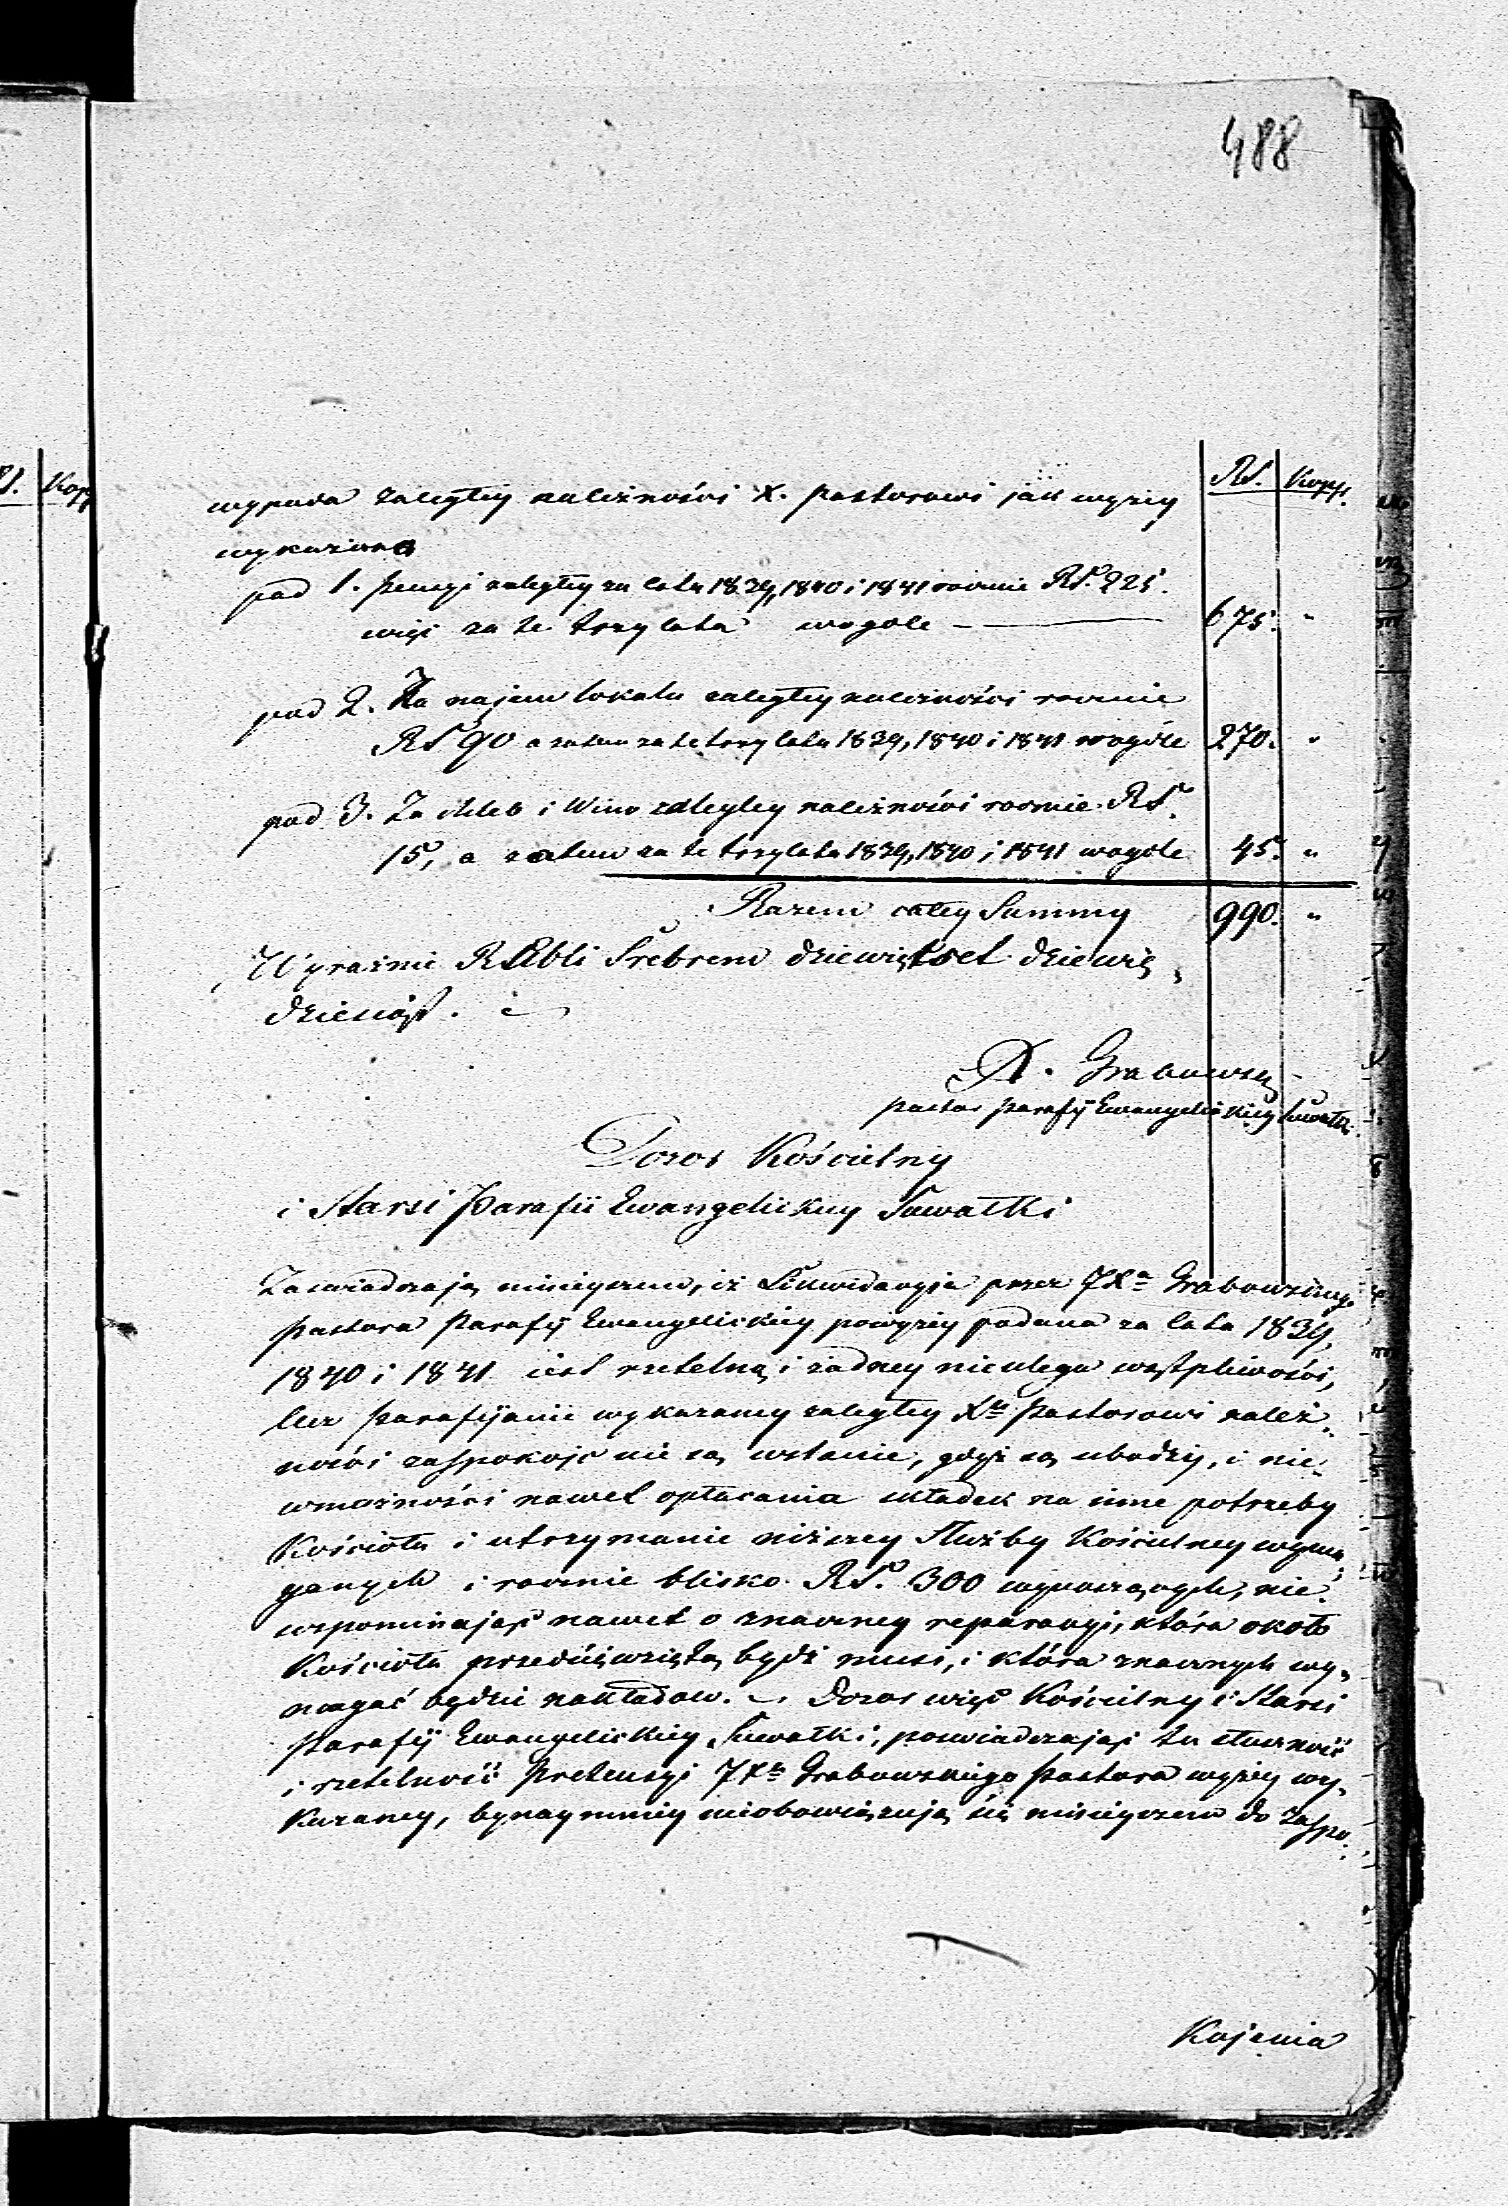 488
RS. Kop.
RS. Kopp.
wypada zaległey należności X. pastorowi jak wyżey
wykazano
pod 1. pensyi zaległey za lata 1839, 1840 i 1841 rocznie RS. 225.
więc za te trzy lata wogole — 675. "
pod 2. Za najem lokalu zaległey należności rocznie
RS 90 a zatem za te trzy lata 1839, 1840 i 1841 wogóle 270. "
pod 3. Za chleb i Wino zaległey należności rocznie RS.
15, a zatem za te trzy lata 1839, 1840 i 1841 wogóle 45. "
Razem całey Summy 990. "
Wyraznie Rubli Srebrem dziewięćset dziewię
dziesiąt.
X. Grabowski
pastor parafij Ewangelickiey Suwałki
Dozor Kościelny
i Starsi Parafii Ewangelickiey Suwałki
Zaswiadczają ninieyszem, iż Likwidacyja przez JXa Grabowskiego
pastora Parafij Ewangelickiey powyżey podana za lata 1839,
1840 i 1841 iest rzetelną i żadney nieulega wątpliwości,
lecz parafijanie wykazaney zaległey Xu Pastorowi należ-
ności zaspokoić nie są wstanie, gdyż są ubodzy, i nie-
wmożności nawet opłacania składek na inne potrzeby
Kościoła i utrzymanie niższey Służby Kościelney wyma-
ganych i rocznie blisko RS. 300 wynoszących, nie-
wspominając nawet o znaczney reparacyi, która około
Kościoła przedsięwziętą bydź musi, i która znacznych wy-
magać będzie nakładow. — Dozor więc Kościelny i Starsi
Parafij Ewangelickiey Suwałki, poswiadczając tu słuszność
i rzetelność Pretensyi JXa Grabowskiego Pastora wyżey wy-
kazaney, bynaymniey nieobowiązują się ninieyszem do zaspo-
kojenia